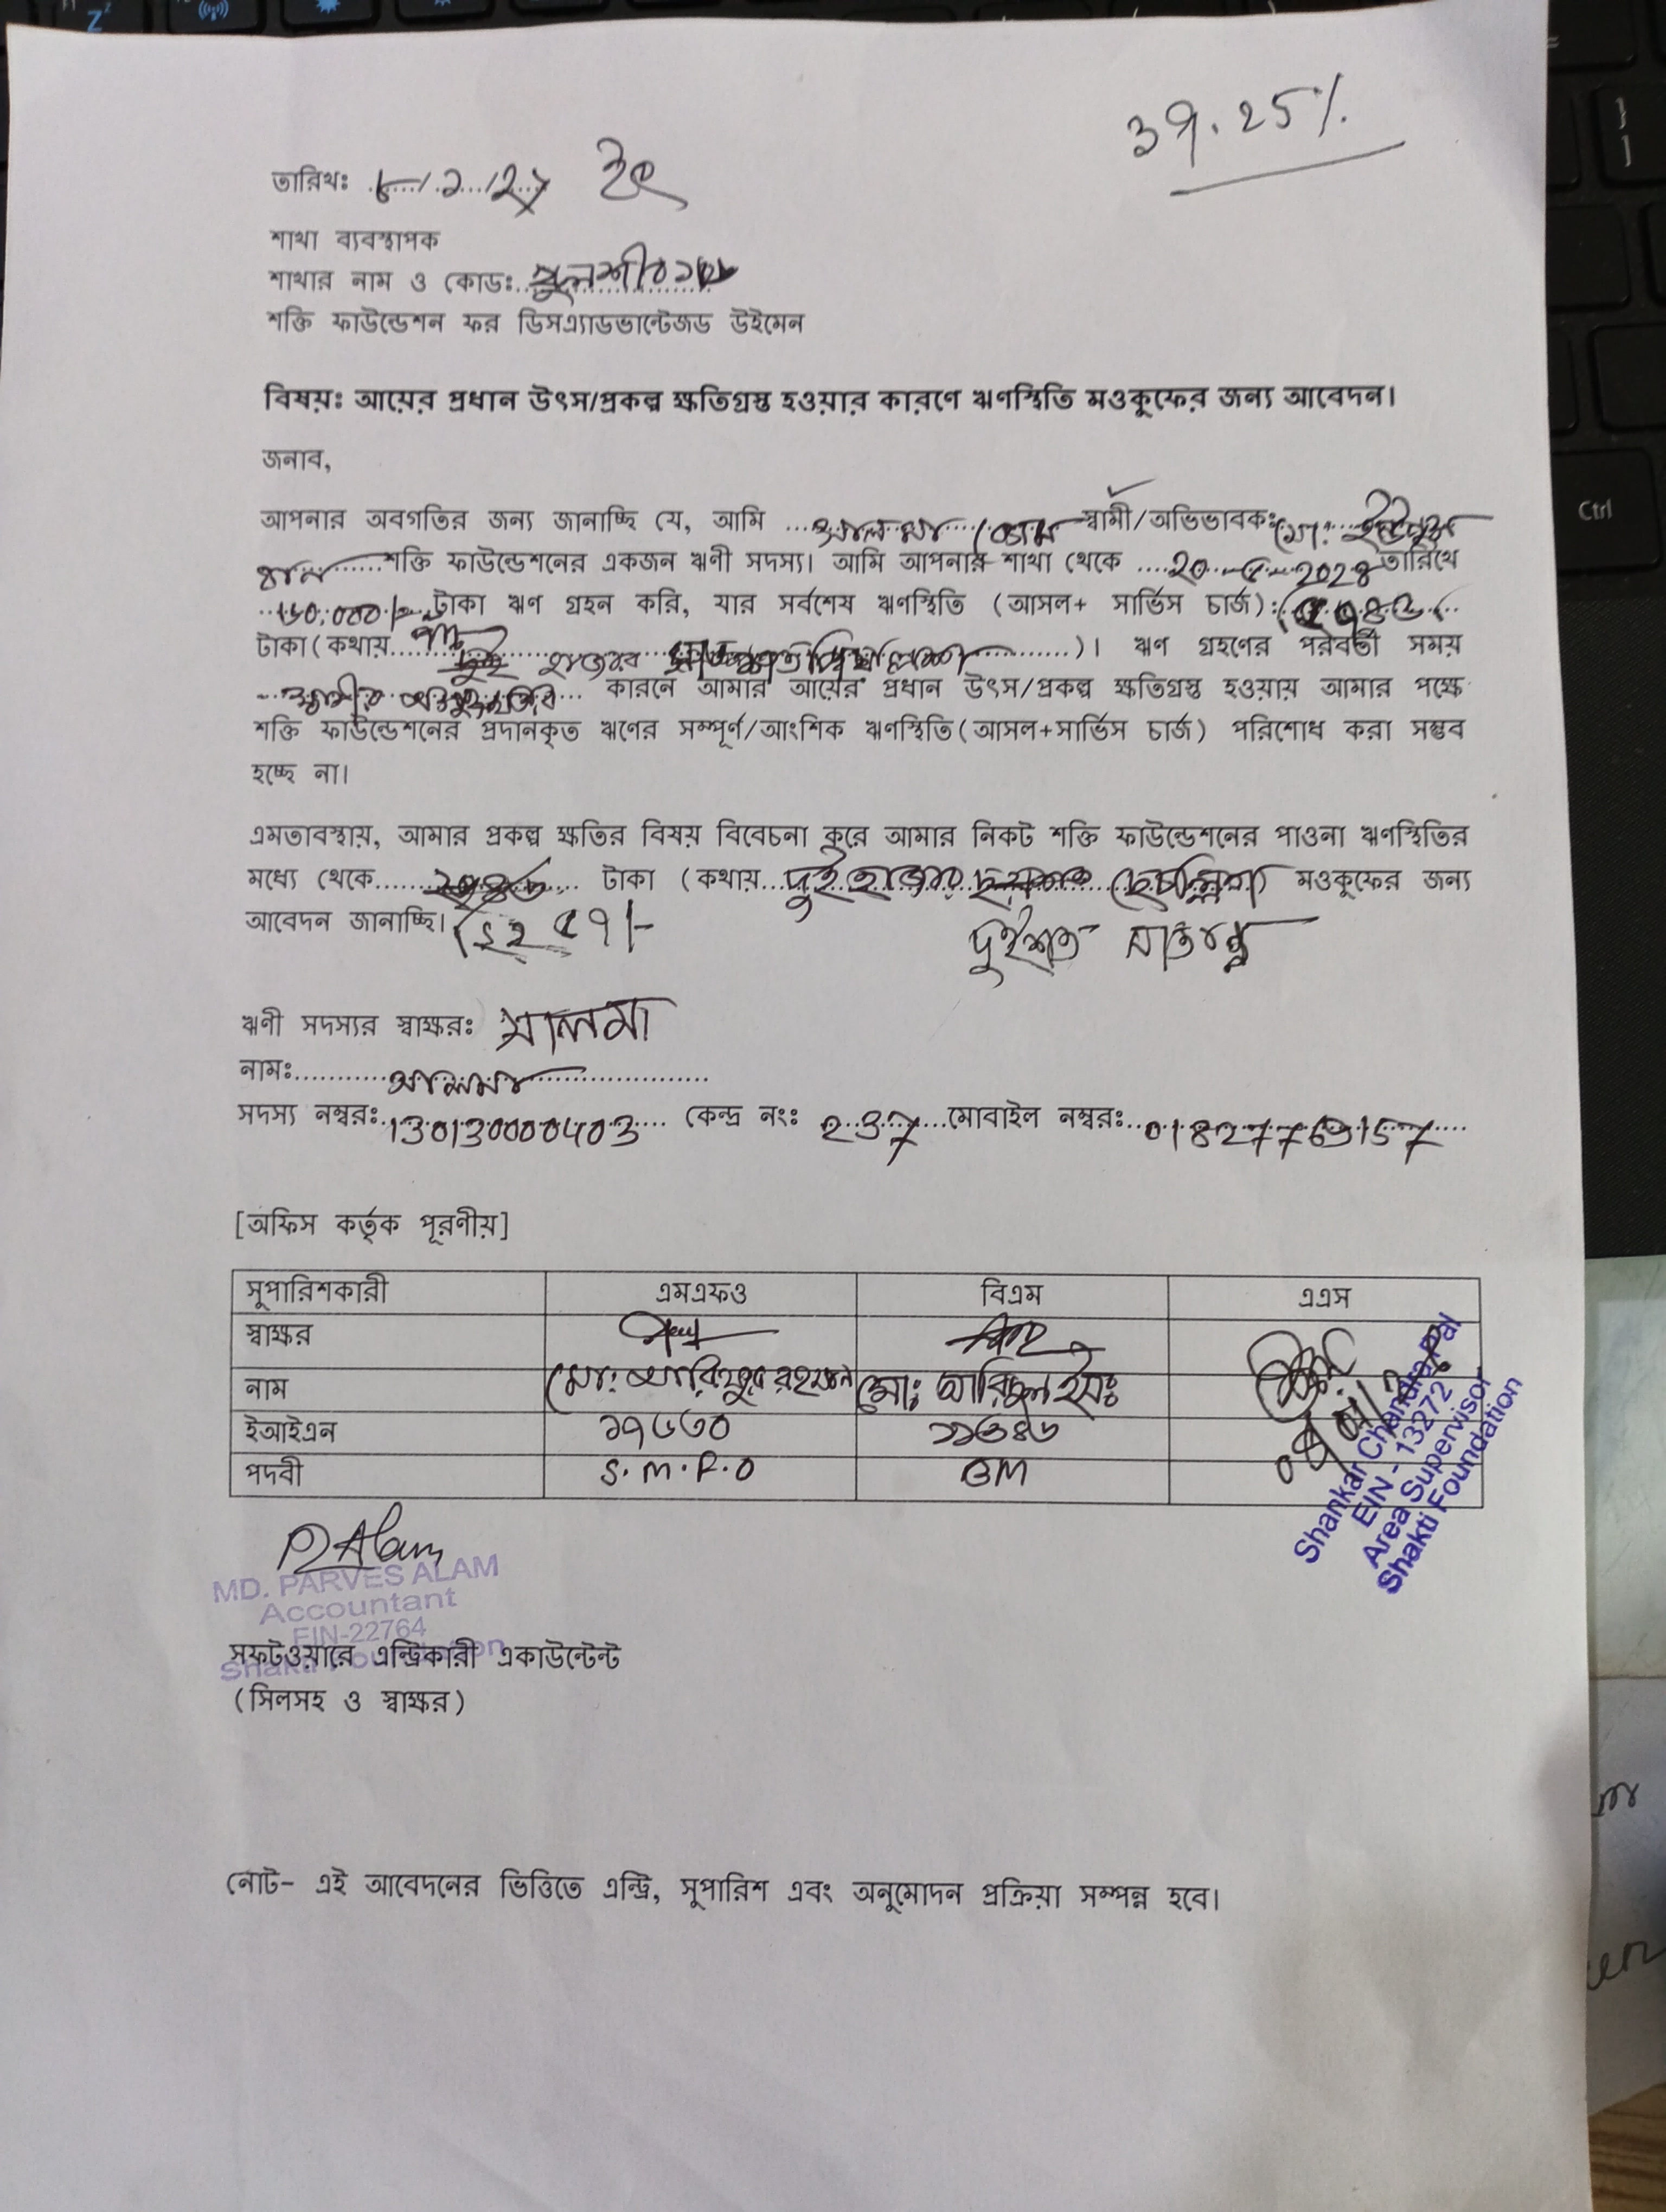 39.25%
তারিখঃ
শাখা ব্যবস্থাপক
শাখার নাম ও কোডঃ
শক্তি ফাউন্ডেশন ফর ডিসএ্যাডভান্টেজড উইমেন
বিষয়ঃ আয়ের প্রধান উৎস/প্রকল্প ক্ষতিগ্রস্ত হওয়ার কারণে ঋণস্থিতি মওকুফের জন্য আবেদন।
জনাব,
আপনার অবগতির জন্য জানাচ্ছি যে, আমি ... স্বামী/অভিভাবকঃ মো:
শক্তি ফাউন্ডেশনের একজন ঋণী সদস্য। আমি আপনার শাখা থেকে ... তারিখে
টাকা ঋণ গ্রহন করি, যার সর্বশেষ ঋণস্থিতি (আসল+ সার্ভিস চার্জ):
টাকা(কথায় ... হাজার ...)। ঋণ গ্রহণের পরবর্তী সময়
কারনে আমার আয়ের প্রধান উৎস/প্রকল্প ক্ষতিগ্রস্ত হওয়ায় আমার পক্ষে
শক্তি ফাউন্ডেশনের প্রদানকৃত ঋণের সম্পূর্ণ/আংশিক ঋণস্থিতি(আসল+সার্ভিস চার্জ) পরিশোধ করা সম্ভব
হচ্ছে না।
এমতাবস্থায়, আমার প্রকল্প ক্ষতির বিষয় বিবেচনা করে আমার নিকট শক্তি ফাউন্ডেশনের পাওনা ঋণস্থিতির
মধ্যে থেকে ... টাকা (কথায় দুই হাজার ...) মওকুফের জন্য
আবেদন জানাচ্ছি।
দুইশত
ঋণী সদস্যর স্বাক্ষরঃ সালমা
নামঃ সালমা
সদস্য নম্বরঃ 13013000403 কেন্দ্র নংঃ 237 মোবাইল নম্বরঃ 01827769157
[অফিস কর্তৃক পূরণীয়]
সুপারিশকারী এমএফও বিএম এএস
স্বাক্ষর
নাম মো: আরিফুর রহমান মো:
ইআইএন ১৭৬৩০ ১১৩৪৬
পদবী S.M.F.O BM
Shankar Chandra Pal
EIN - 13272
Area Supervisor
Shakti Foundation
P Alam
MD. PARVES ALAM
Accountant
EIN-22764
Shakti Foundation
সফটওয়ারে এন্ট্রিকারী একাউন্টেন্ট
(সিলসহ ও স্বাক্ষর)
নোট- এই আবেদনের ভিত্তিতে এন্ট্রি, সুপারিশ এবং অনুমোদন প্রক্রিয়া সম্পন্ন হবে।